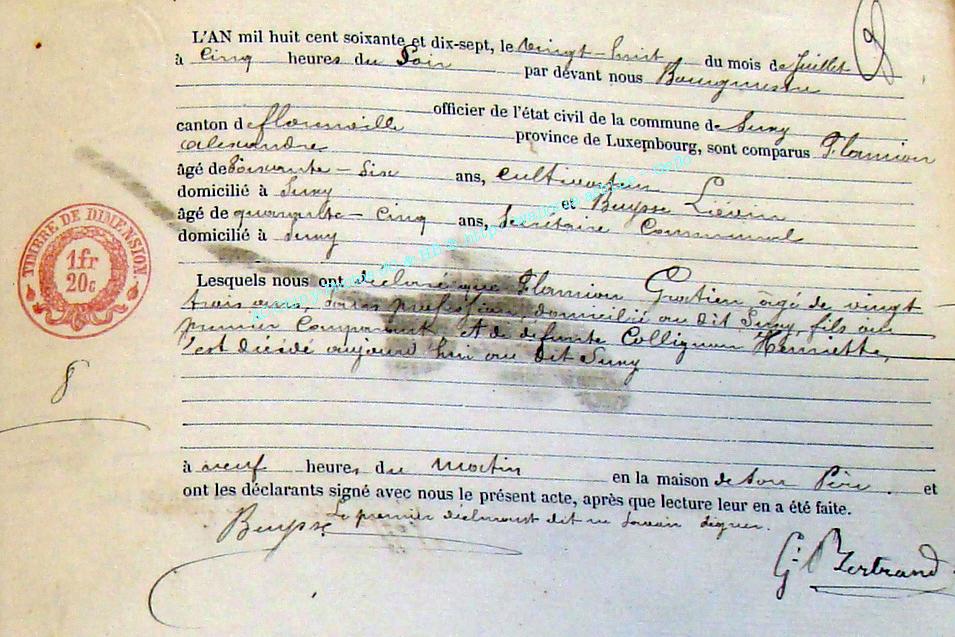 L'AN mil huit cent soixante et dix-sept, le vingt-huit du mois de Juillet
à Cinq heures du Soir par devant nous Bourgmestre
officier de l'état civil de la commune de Suny
canton de florenville province de Luxembourg, sont comparus Flamion
alexandre
âgé de Soixante-Six ans, Cultivateur
domicilié à Suny et Buysse Liévin
âgé de quarante-Cinq ans, Secrétaire Communal
domicilié à Suny
Lesquels nous ont déclaré que Flamion Gratien âgé de vingt
trois ans, sans profession, domicilié au dit Suny, fils au
premier Comparant et de défunte Collignon Henriette,
est décédé aujourd'hui au dit Suny
à neuf heures du matin en la maison de son Père. et
ont les déclarants signé avec nous le présent acte, après que lecture leur en a été faite.
Le premier déclarant dit ne savoir signer.
Buysse
G. Bertrand
TIMBRE DE DIMENSION.
1fr
20c
8